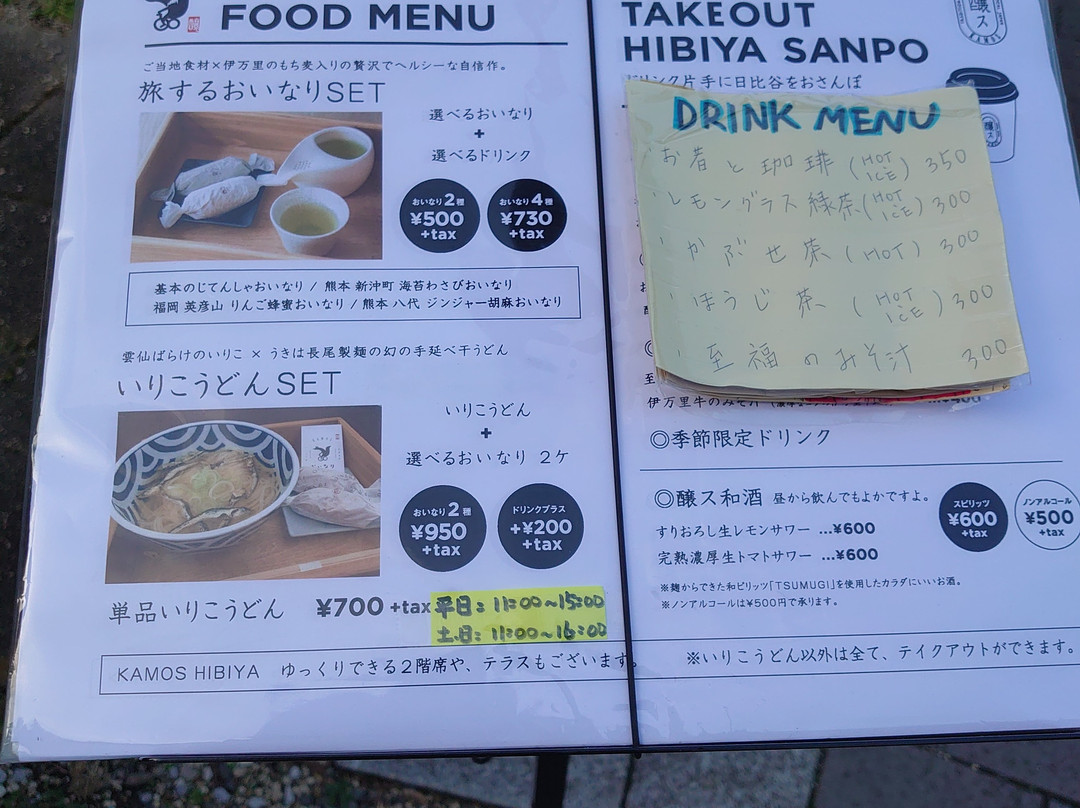 FOOD MENU
ご当地食材×伊万里のもち麦入りの贅沢でヘルシーな自信作。
旅するおいなりSET
選べるおいなり
+
選べるドリンク
おいなり2種
¥500
+tax
おいなり4種
¥730
+tax
基本のじてんしゃおいなり / 熊本 新沖町 海苔わさびおいなり
福岡 英彦山 りんご蜂蜜おいなり / 熊本 八代 ジンジャー胡麻おいなり
雲仙ばらけのいりこ × うきは長尾製麺の幻の手延べ干うどん
いりこうどんSET
いりこうどん
+
選べるおいなり 2ケ
おいなり2種
¥950
+tax
ドリンクプラス
+¥200
+tax
単品いりこうどん ¥700 +tax
平日:11:00~15:00
土日:11:00~16:00
KAMOS HIBIYA ゆっくりできる2階席や、テラスもございます。
TAKEOUT
HIBIYA SANPO
ドリンク片手に日比谷をおさんぽ
醸ス
KAMOS
DRINK MENU
お昔と珈琲(HOT ICE) 350
・レモングラス緑茶(HOT ICE) 300
・かぶせ茶(HOT) 300
・ほうじ茶(HOT ICE) 300
・至福のみそ汁 300
伊万里牛のみそ汁
◎季節限定ドリンク
◎醸ス和酒 昼から飲んでもよかですよ。
すりおろし生レモンサワー …¥600
完熟濃厚生トマトサワー …¥600
スピリッツ
¥600
+tax
ノンアルコール
¥500
+tax
※麹からできた和ピリッツ「TSUMUGI」を使用したカラダにいいお酒。
※ノンアルコールは¥500円で承ります。
※いりこうどん以外は全て、テイクアウトができます。